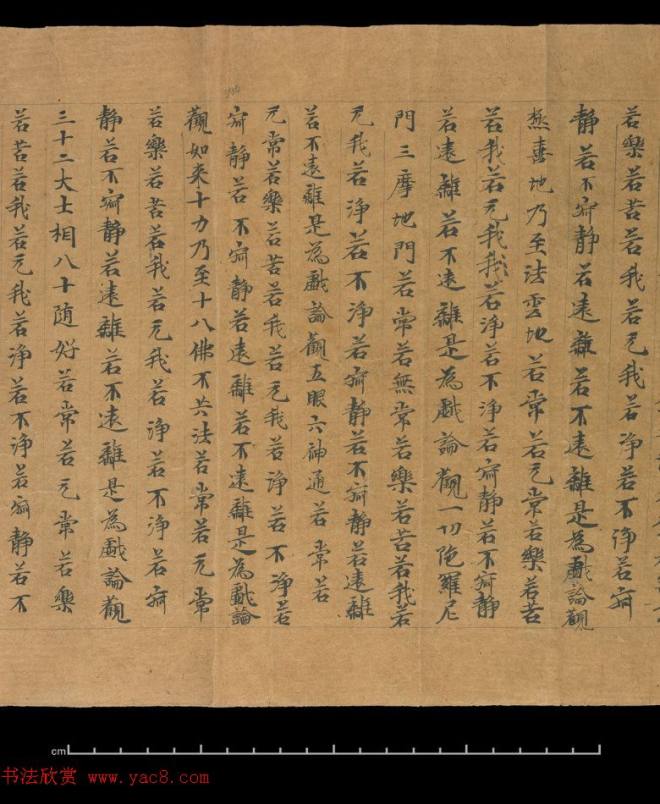 若樂若苦若我若无我若淨若不淨若寂
靜若不寂靜若遠離若不遠離是為戲論觀
極喜地乃至法雲地若常若无常若樂若苦
若我若无我我若淨若不淨若寂靜若不寂靜
若遠離若不遠離是為戲論觀一切陀羅尼
門三摩地門若常若無常若樂若苦若我若
无我若淨若不淨若寂靜若不寂靜若遠離
若不遠離是為戲論觀五眼六神通若常若
无常若樂若苦若我若无我若淨若不淨若
寂靜若不寂靜若遠離若不遠離是為戲論
觀如來十力乃至十八佛不共法若常若无常
若樂若苦若我若无我若淨若不淨若寂
靜若不寂靜若遠離若不遠離是為戲論觀
三十二大士相八十随好若常若无常若樂
若苦若我若无我若淨若不淨若寂靜若不
cm
书法欣赏 www.yac8.com